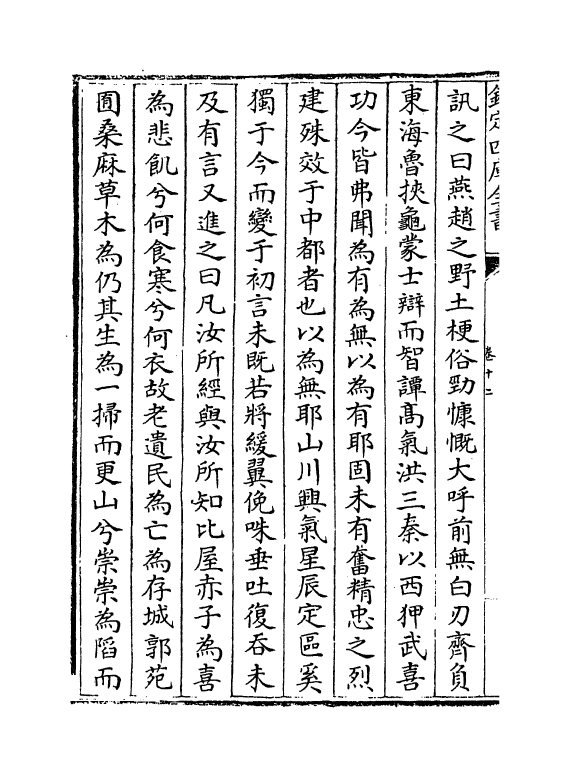 欽定四庫全書
卷十二
訊之曰燕趙之野土梗俗勁慷慨大呼前無白刃齊負
東海魯挾龜蒙士辯而智譚髙氣洪三秦以西狎武喜
功今皆弗聞為有為無以為有耶固未有奮精忠之烈
建殊效于中都者也以為無耶山川興氣星辰定區奚
獨于今而變于初言未既若將緩翼俛咮垂吐復吞未
及有言又進之曰凡汝所經與汝所知比屋赤子為喜
為悲飢兮何食寒兮何衣故老遺民為亡為存城郭苑
囿桑麻草木為仍其生為一掃而更山兮崇崇為陷而